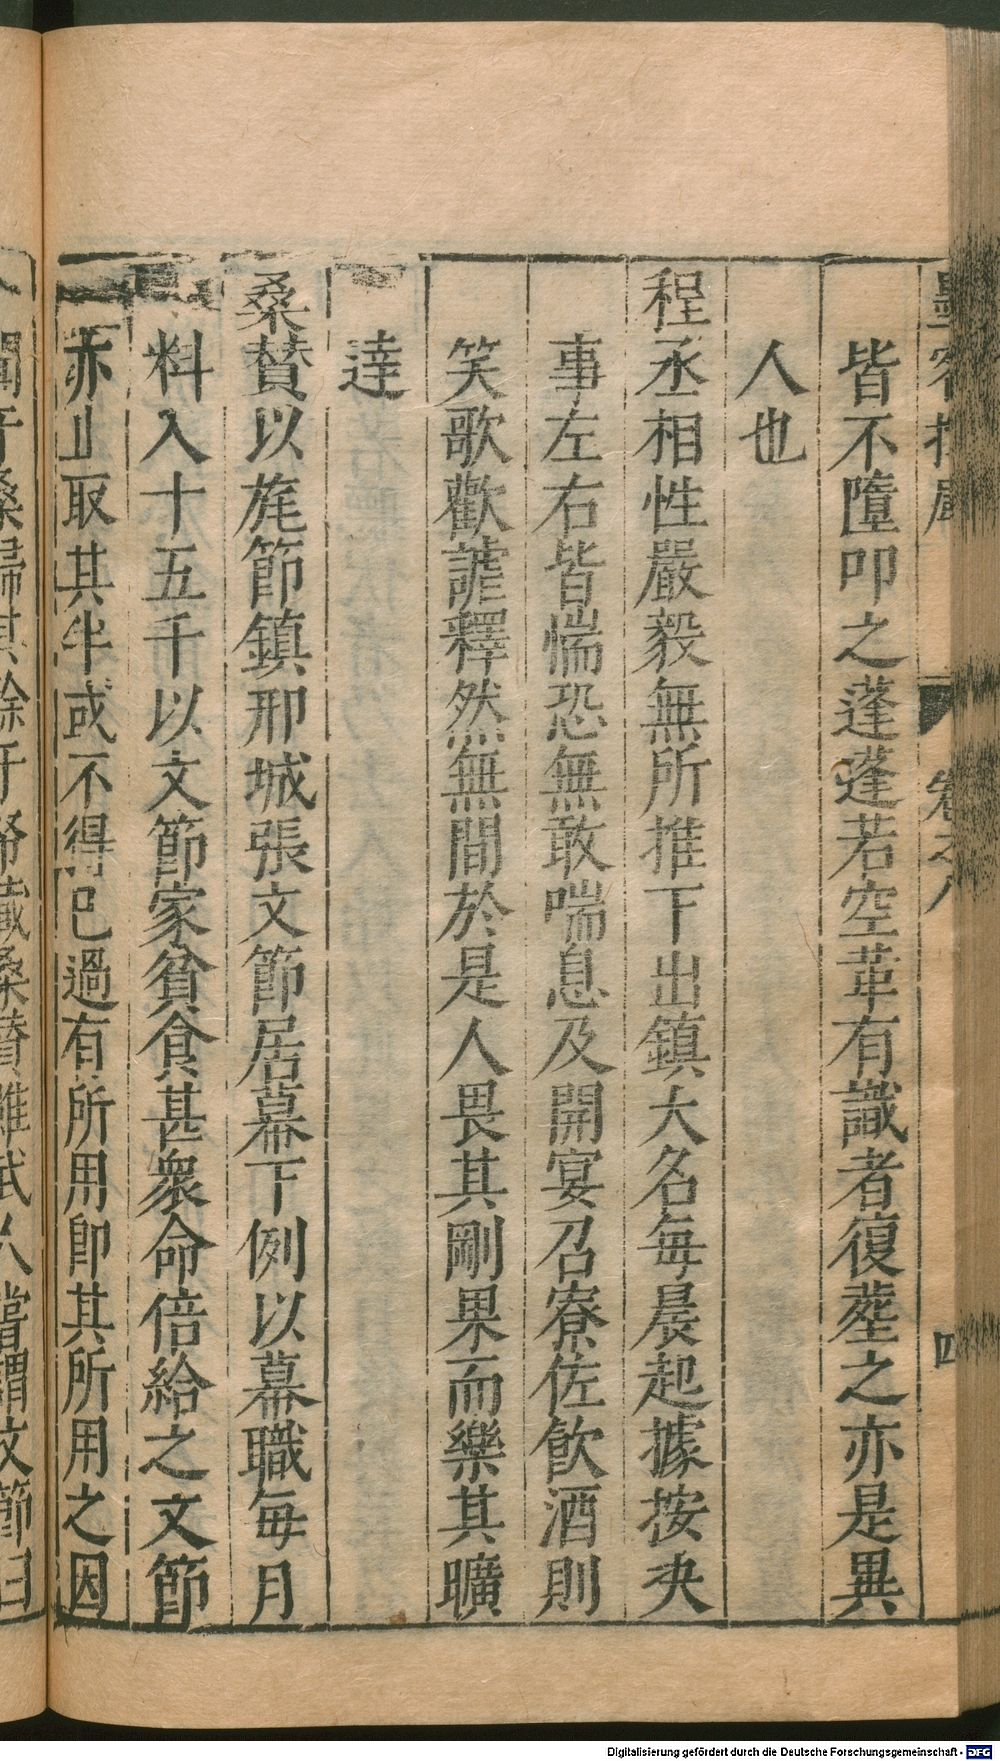 墨客揮犀 卷之八 四
皆不隳叩之蓬蓬若空革有識者復塟之亦是異
人也
程丞相性嚴毅無所推下出鎮大名每晨起據按夬
事左右皆惴恐無敢喘息及開宴召寮佐飮酒則
笑歌歡謔釋然無間於是人畏其剛果而樂其曠
達
桑賛以旄節鎮邢城張文節居幕下例以幕職每月
料入十五千以文節家貧食甚衆命倍給之文節
亦止取其半或不得已過有所用卽其所用之因
聞于桑歸其餘于帑藏桑賛雖武人嘗謂文節曰
Digitalisierung gefördert durch die Deutsche Forschungsgemeinschaft - DFG